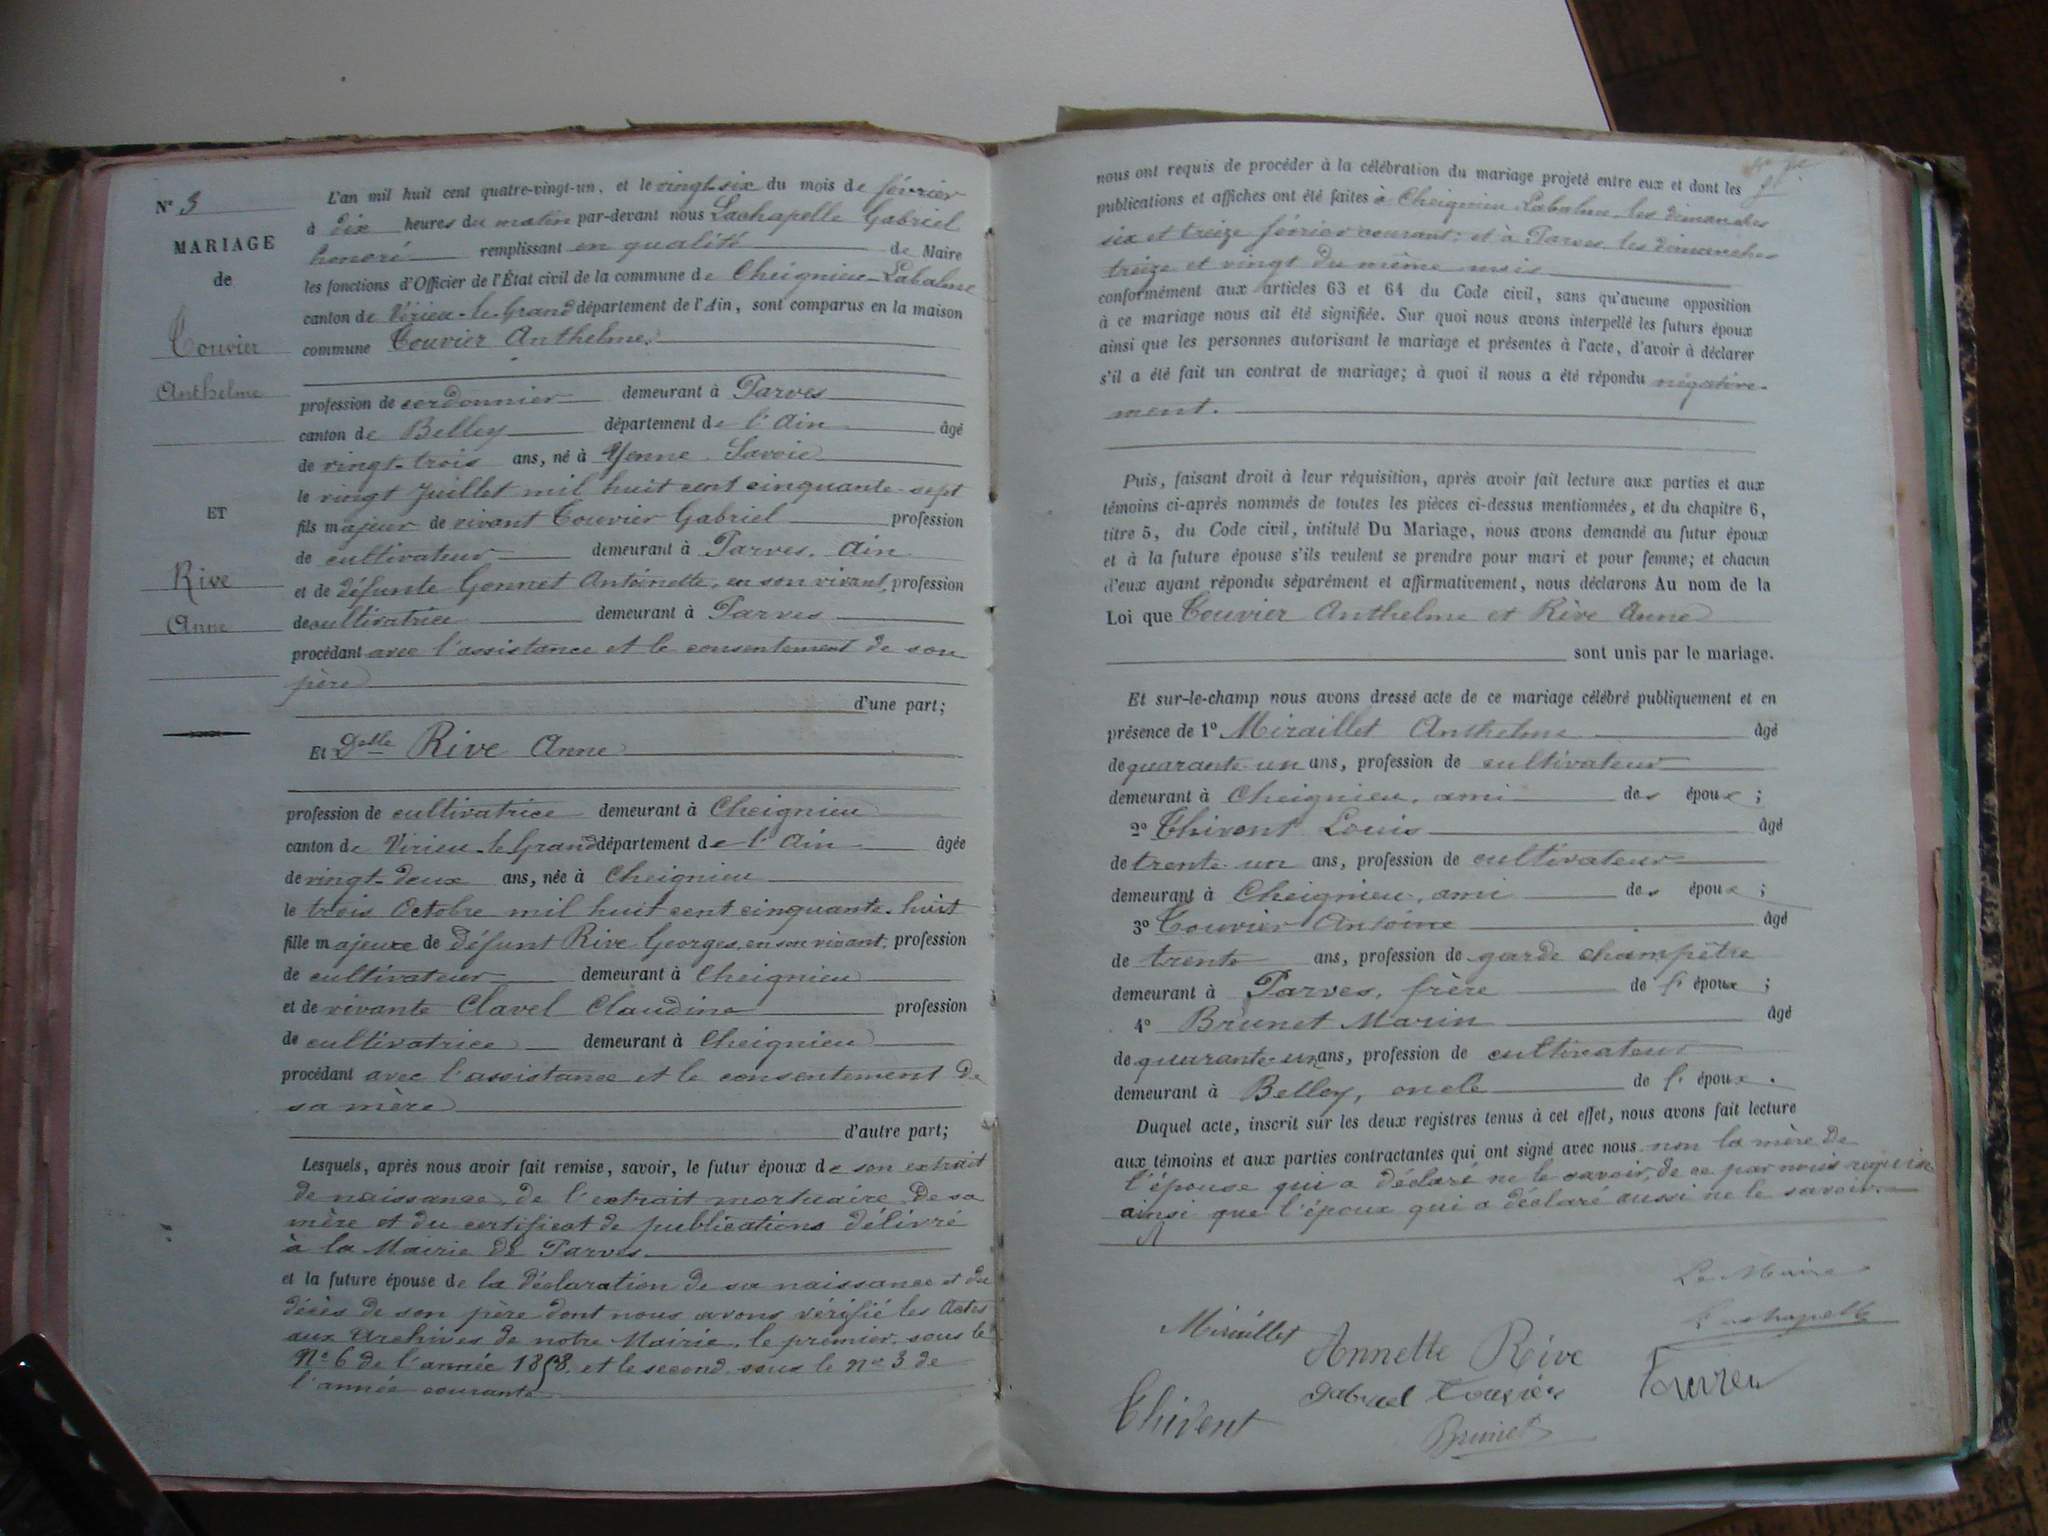 N° 3
MARIAGE
de
Touvier
Anthelme
ET
Rive
Anne
L'an mil huit cent quatre-vingt-un, et le vingt-six du mois de février
à dix heures du matin par-devant nous Lachapelle Gabriel
honoré remplissant en qualité de Maire
les fonctions d'Officier de l'État civil de la commune de Cheignieu-Labalme
canton de Virieu-le-Grand département de l'Ain, sont comparus en la maison
commune Touvier Anthelme.
profession de cordonnier demeurant à Parves
canton de Belley département de l'Ain âgé
de vingt-trois ans, né à Yenne Savoie
le vingt Juillet mil huit cent cinquante-sept
fils majeur de vivant Touvier Gabriel profession
de cultivateur demeurant à Parves. Ain
et de défunte Gonnet Antoinette, en son vivant, profession
de cultivatrice demeurant à Parves
procédant avec l'assistance et le consentement de son
père
d'une part;
Et Delle Rive Anne
profession de cultivatrice demeurant à Cheignieu
canton de Virieu-le-Grand département de l'Ain âgée
de vingt-deux ans, née à Cheignieu
le trois Octobre mil huit cent cinquante-huit
fille majeure de défunt Rive Georges, en son vivant, profession
de cultivateur demeurant à Cheignieu
et de vivante Clavel Claudine profession
de cultivatrice demeurant à Cheignieu
procédant avec l'assistance et le consentement de
sa mère
d'autre part;
Lesquels, après nous avoir fait remise, savoir, le futur époux de son extrait
de naissance, de l'extrait mortuaire de sa
mère et du certificat de publications délivré
à la Mairie de Parves
et la future épouse de la déclaration de sa naissance et du
décès de son père dont nous avons vérifié les Actes
aux Archives de notre Mairie, le premier sous le
N° 6 de l'année 1858, et le second sous le N° 3 de
l'année courante
nous ont requis de procéder à la célébration du mariage projeté entre eux et dont les
publications et affiches ont été faites à Cheignieu-Labalme les dimanches
six et treize février courant; et à Parves les dimanches
treize et vingt du même mois
conformément aux articles 63 et 64 du Code civil, sans qu'aucune opposition
à ce mariage nous ait été signifiée. Sur quoi nous avons interpellé les futurs époux
ainsi que les personnes autorisant le mariage et présentes à l'acte, d'avoir à déclarer
s'il a été fait un contrat de mariage; à quoi il nous a été répondu négative-
ment.
Puis, faisant droit à leur réquisition, après avoir fait lecture aux parties et aux
témoins ci-après nommés de toutes les pièces ci-dessus mentionnées, et du chapitre 6,
titre 5, du Code civil, intitulé Du Mariage, nous avons demandé au futur époux
et à la future épouse s'ils veulent se prendre pour mari et pour femme; et chacun
d'eux ayant répondu séparément et affirmativement, nous déclarons Au nom de la
Loi que Touvier Anthelme et Rive Anne
sont unis par le mariage.
Et sur-le-champ nous avons dressé acte de ce mariage célébré publiquement et en
présence de 1° Miraillet Anthelme âgé
de quarante-un ans, profession de cultivateur
demeurant à Cheignieu, ami des époux;
2° Thivent Louis âgé
de trente-un ans, profession de cultivateur
demeurant à Cheignieu, ami des époux;
3° Touvier Antoine âgé
de trente ans, profession de garde champêtre
demeurant à Parves, frère de l'époux;
4° Brunet Marin âgé
de quarante-un ans, profession de cultivateur
demeurant à Belley, oncle de l'époux.
Duquel acte, inscrit sur les deux registres tenus à cet effet, nous avons fait lecture
aux témoins et aux parties contractantes qui ont signé avec nous non la mère de
l'épouse qui a déclaré ne le savoir, de ce par nous requise
ainsi que l'époux qui a déclaré aussi ne le savoir.
Le Maire
Lachapelle
Miraillet
Annette Rive
Gabriel Touvier
Thivent
Brunet